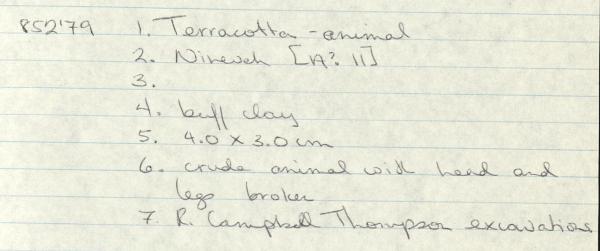 852'79 1. Terracotta - animal
2. Nineveh [A? 11]
3.
4. buff clay
5. 4.0 x 3.0 cm
6. crude animal with head and
legs broken
7. R. Campbell Thompson excavations